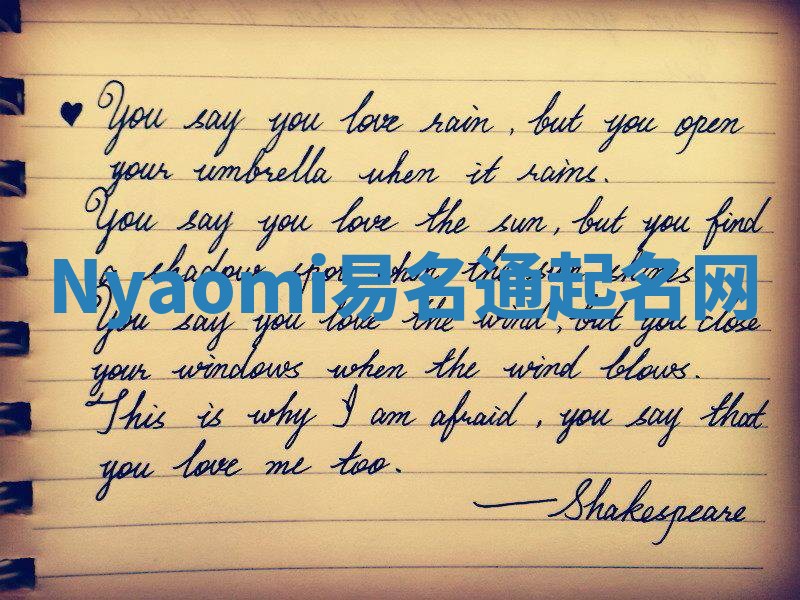 ♥ You say you love rain, but you open
your umbrella when it rains.
You say you love the sun, but you find
a shadow spot when the sun shines
Nyaomi易名通起名网
You say you love the wind, but you close
your windows when the wind blows.
This is why I am afraid, you say that
you love me too.
— Shakespeare